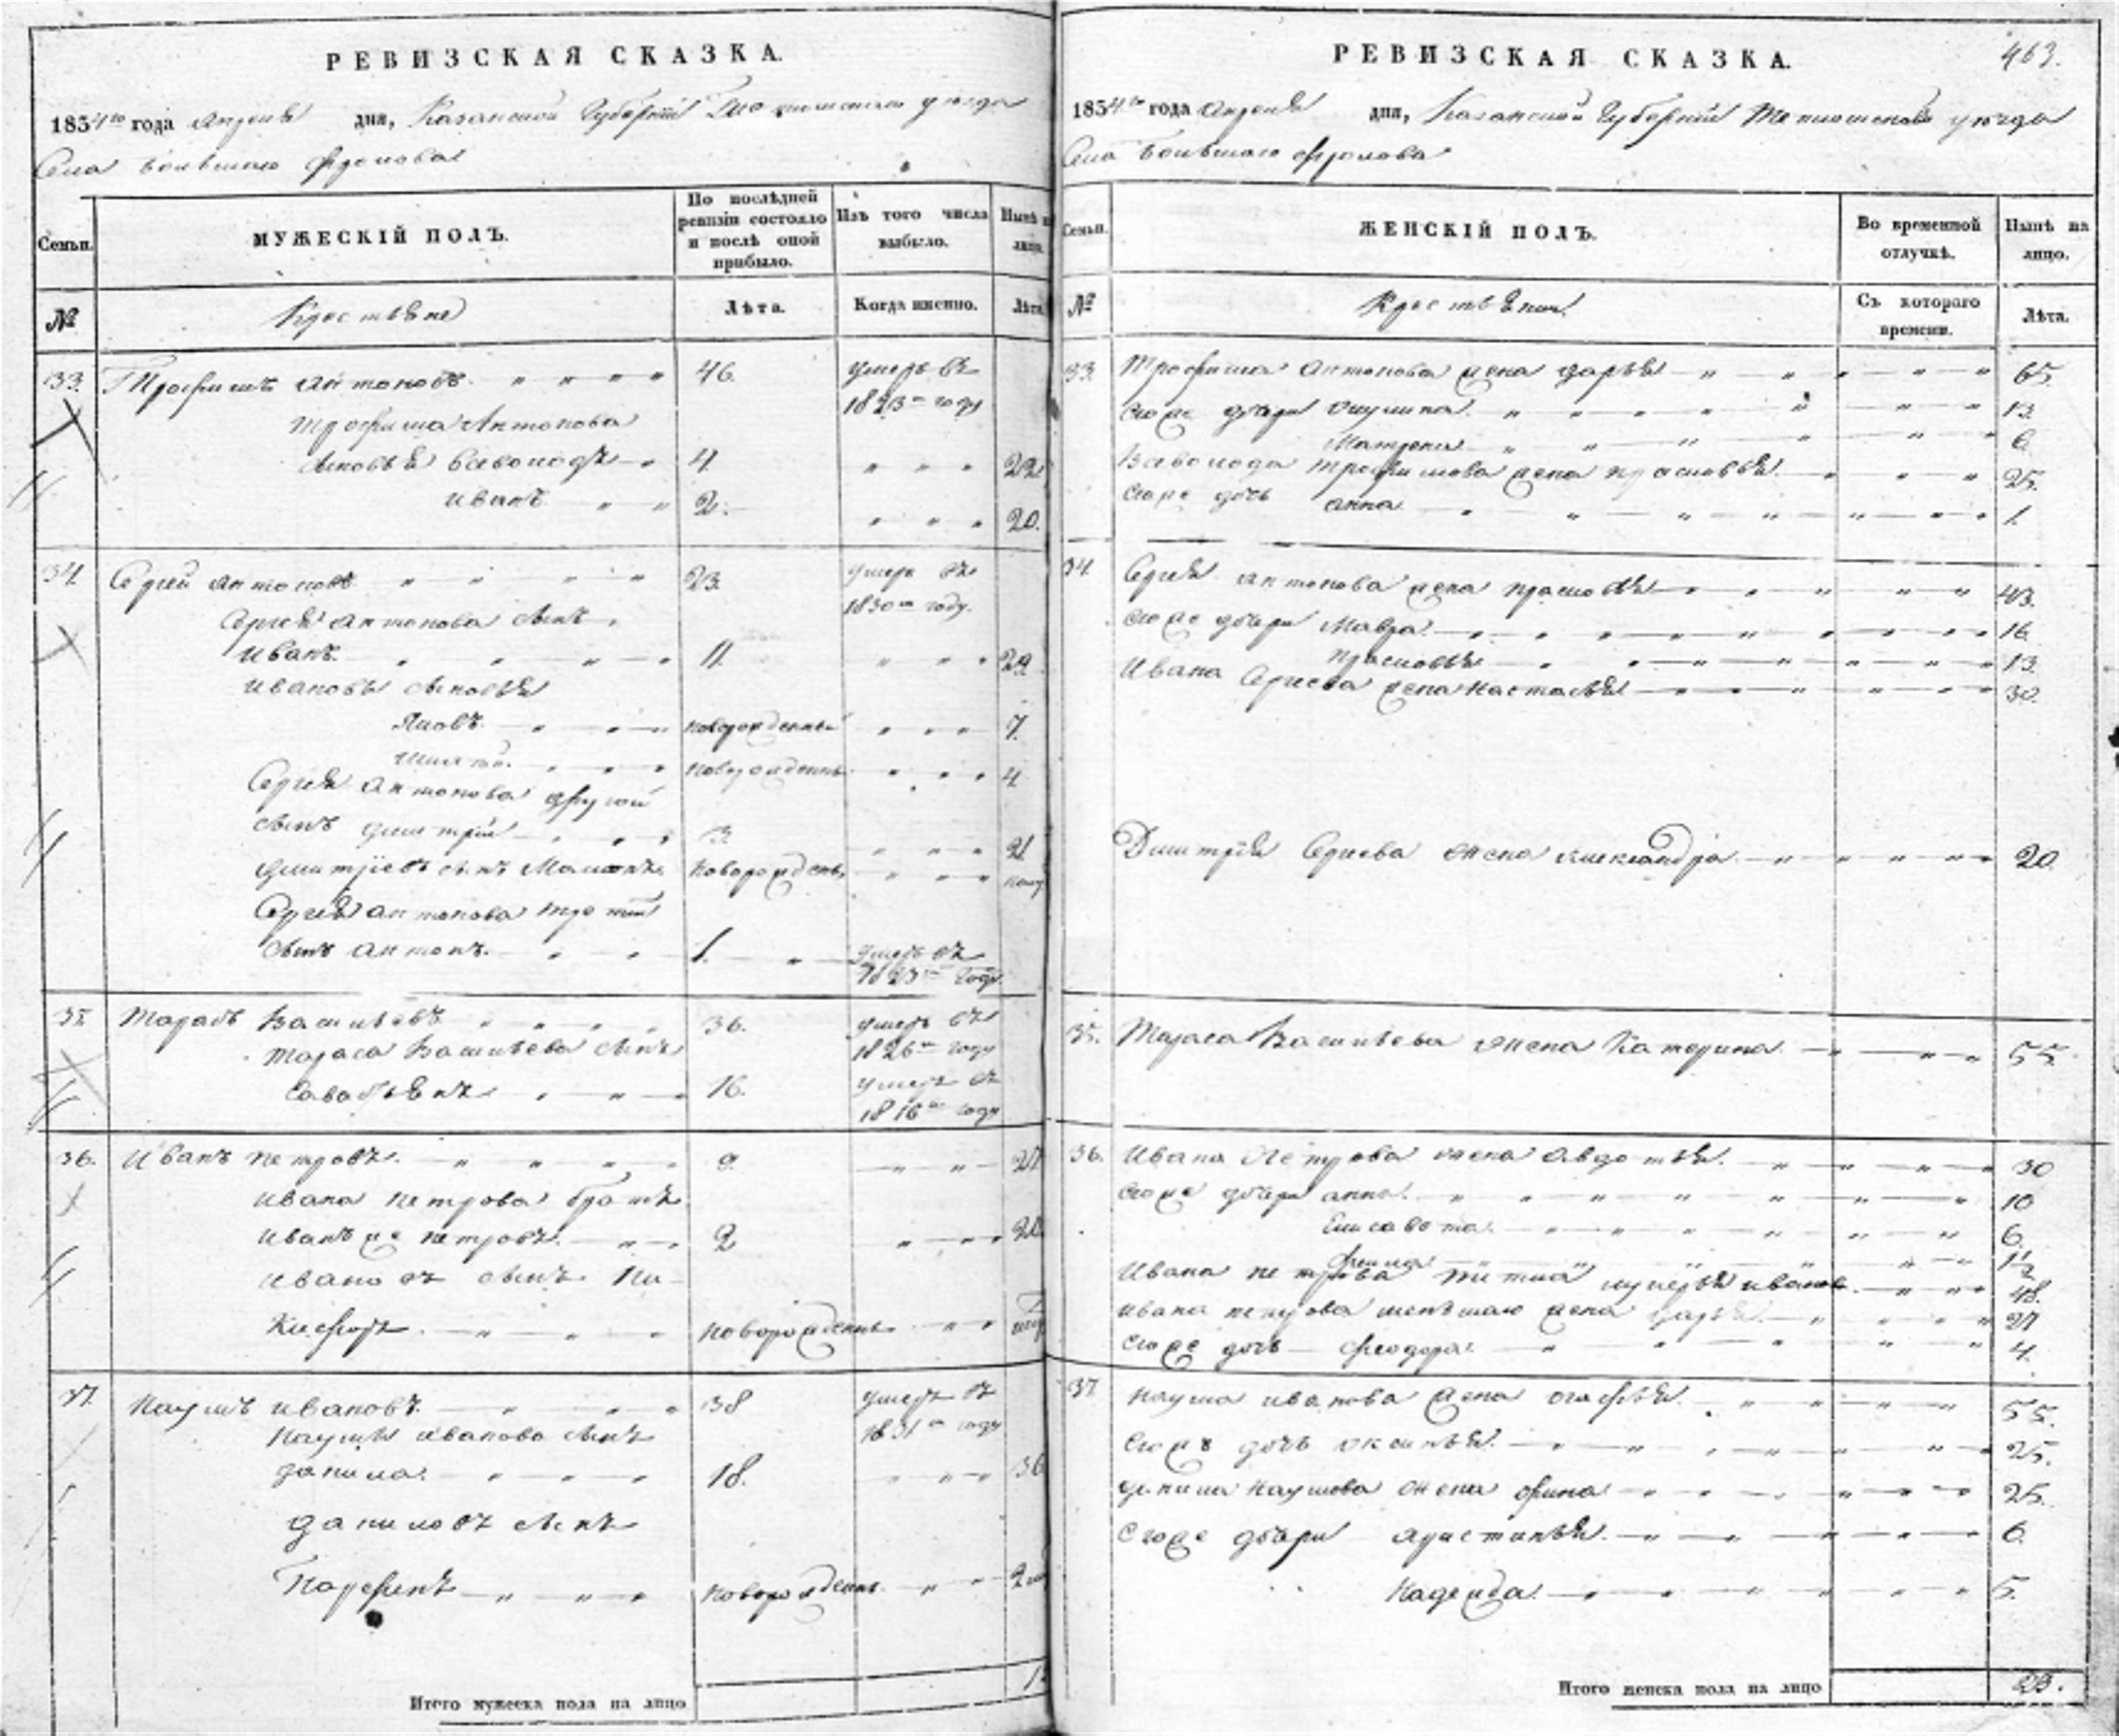 РЕВИЗСКАЯ СКАЗКА.
1834го года Апреля дня, Казанской Губернии уезда
Села Большаго Фролова
Семьи. МУЖЕСКІЙ ПОЛЪ. По послѣдней ревизіи состояло и послѣ оной прибыло. Изъ того числа выбыло. Нынѣ на лицо.
№ Крестьяне Лѣта. Когда именно. Лѣта
33. Трофимъ Антоновъ 46. умеръ въ
1823м году
Трофима Антонова
сыновья Всеволодъ 4. 22
Иванъ 2. 20.
34. Сергей Антоновъ 23. умеръ въ
1830м году.
Сергея Антонова сынъ
Иванъ 11. 29
Ивановы сыновья
Яковъ новорожденный 7.
новорожденъ 4
Сергея Антонова другой
сынъ Дмитрій 3. 21
Дмитріевъ сынъ новорожденъ
Сергея Антонова третій
сынъ Антонъ. 1. умеръ въ
1823м году
35 Тарасъ Васильевъ 36. умеръ въ
1826м году
Тараса Васильева сынъ
16. умеръ въ
1816м году
36. Иванъ Петровъ. 9. 27
Ивана Петрова братъ
Иванъ же Петровъ. 2 20
Ивановъ сынъ Ни-
кифоръ новорожденъ
37. Наумъ Ивановъ. 38 умеръ въ
1831м году
Наума Иванова сынъ
Данила. 18. 36
Даниловъ сынъ
Парфенъ новорожденъ 2
Итого мужеска пола на лицо
РЕВИЗСКАЯ СКАЗКА. 463.
1834го года Апреля дня, Казанской Губернии Тетюшскаго уезда
Села Большаго Фролова
Семьи. ЖЕНСКІЙ ПОЛЪ. Во временной отлучкѣ. Нынѣ на лицо.
№ Съ котораго времени. Лѣта.
33. Трофима Антонова жена Дарья 65.
его же дочери Акулина 13
Матрена 6
Всеволода Трофимова жена Прасковья 25.
его же дочь Анна 1.
34 Сергея Антонова жена Прасковья 43.
его же дочери Мавра 16
Прасковья 13.
Ивана Сергеева жена Настасья 30.
Дмитрия Сергеева жена Александра 20.
35. Тараса Васильева жена Катерина 55.
36. Ивана Петрова жена Авдотья. 30
его же дочери Анна. 10
Елисавета. 6.
1/2
Ивана Петрова 48.
Ивана Петрова меньшаго жена Дарья. 27
его же дочь Феодора. 4.
37 Наума Иванова жена Агафья. 55.
его же дочь Аксинья. 25.
Данила Наумова жена Орина 25.
его же дочери 6.
Надежда. 5.
Итого женска пола на лицо 23.